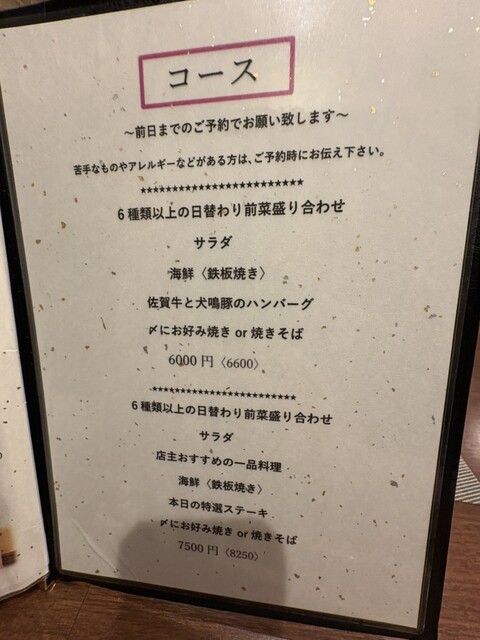 コース
～前日までのご予約でお願い致します～
苦手なものやアレルギーなどがある方は、ご予約時にお伝え下さい。
************************
6種類以上の日替わり前菜盛り合わせ
サラダ
海鮮〈鉄板焼き〉
佐賀牛と犬鳴豚のハンバーグ
〆にお好み焼き or 焼きそば
6000円〈6600〉
************************
6種類以上の日替わり前菜盛り合わせ
サラダ
店主おすすめの一品料理
海鮮〈鉄板焼き〉
本日の特選ステーキ
〆にお好み焼き or 焼きそば
7500円〈8250〉